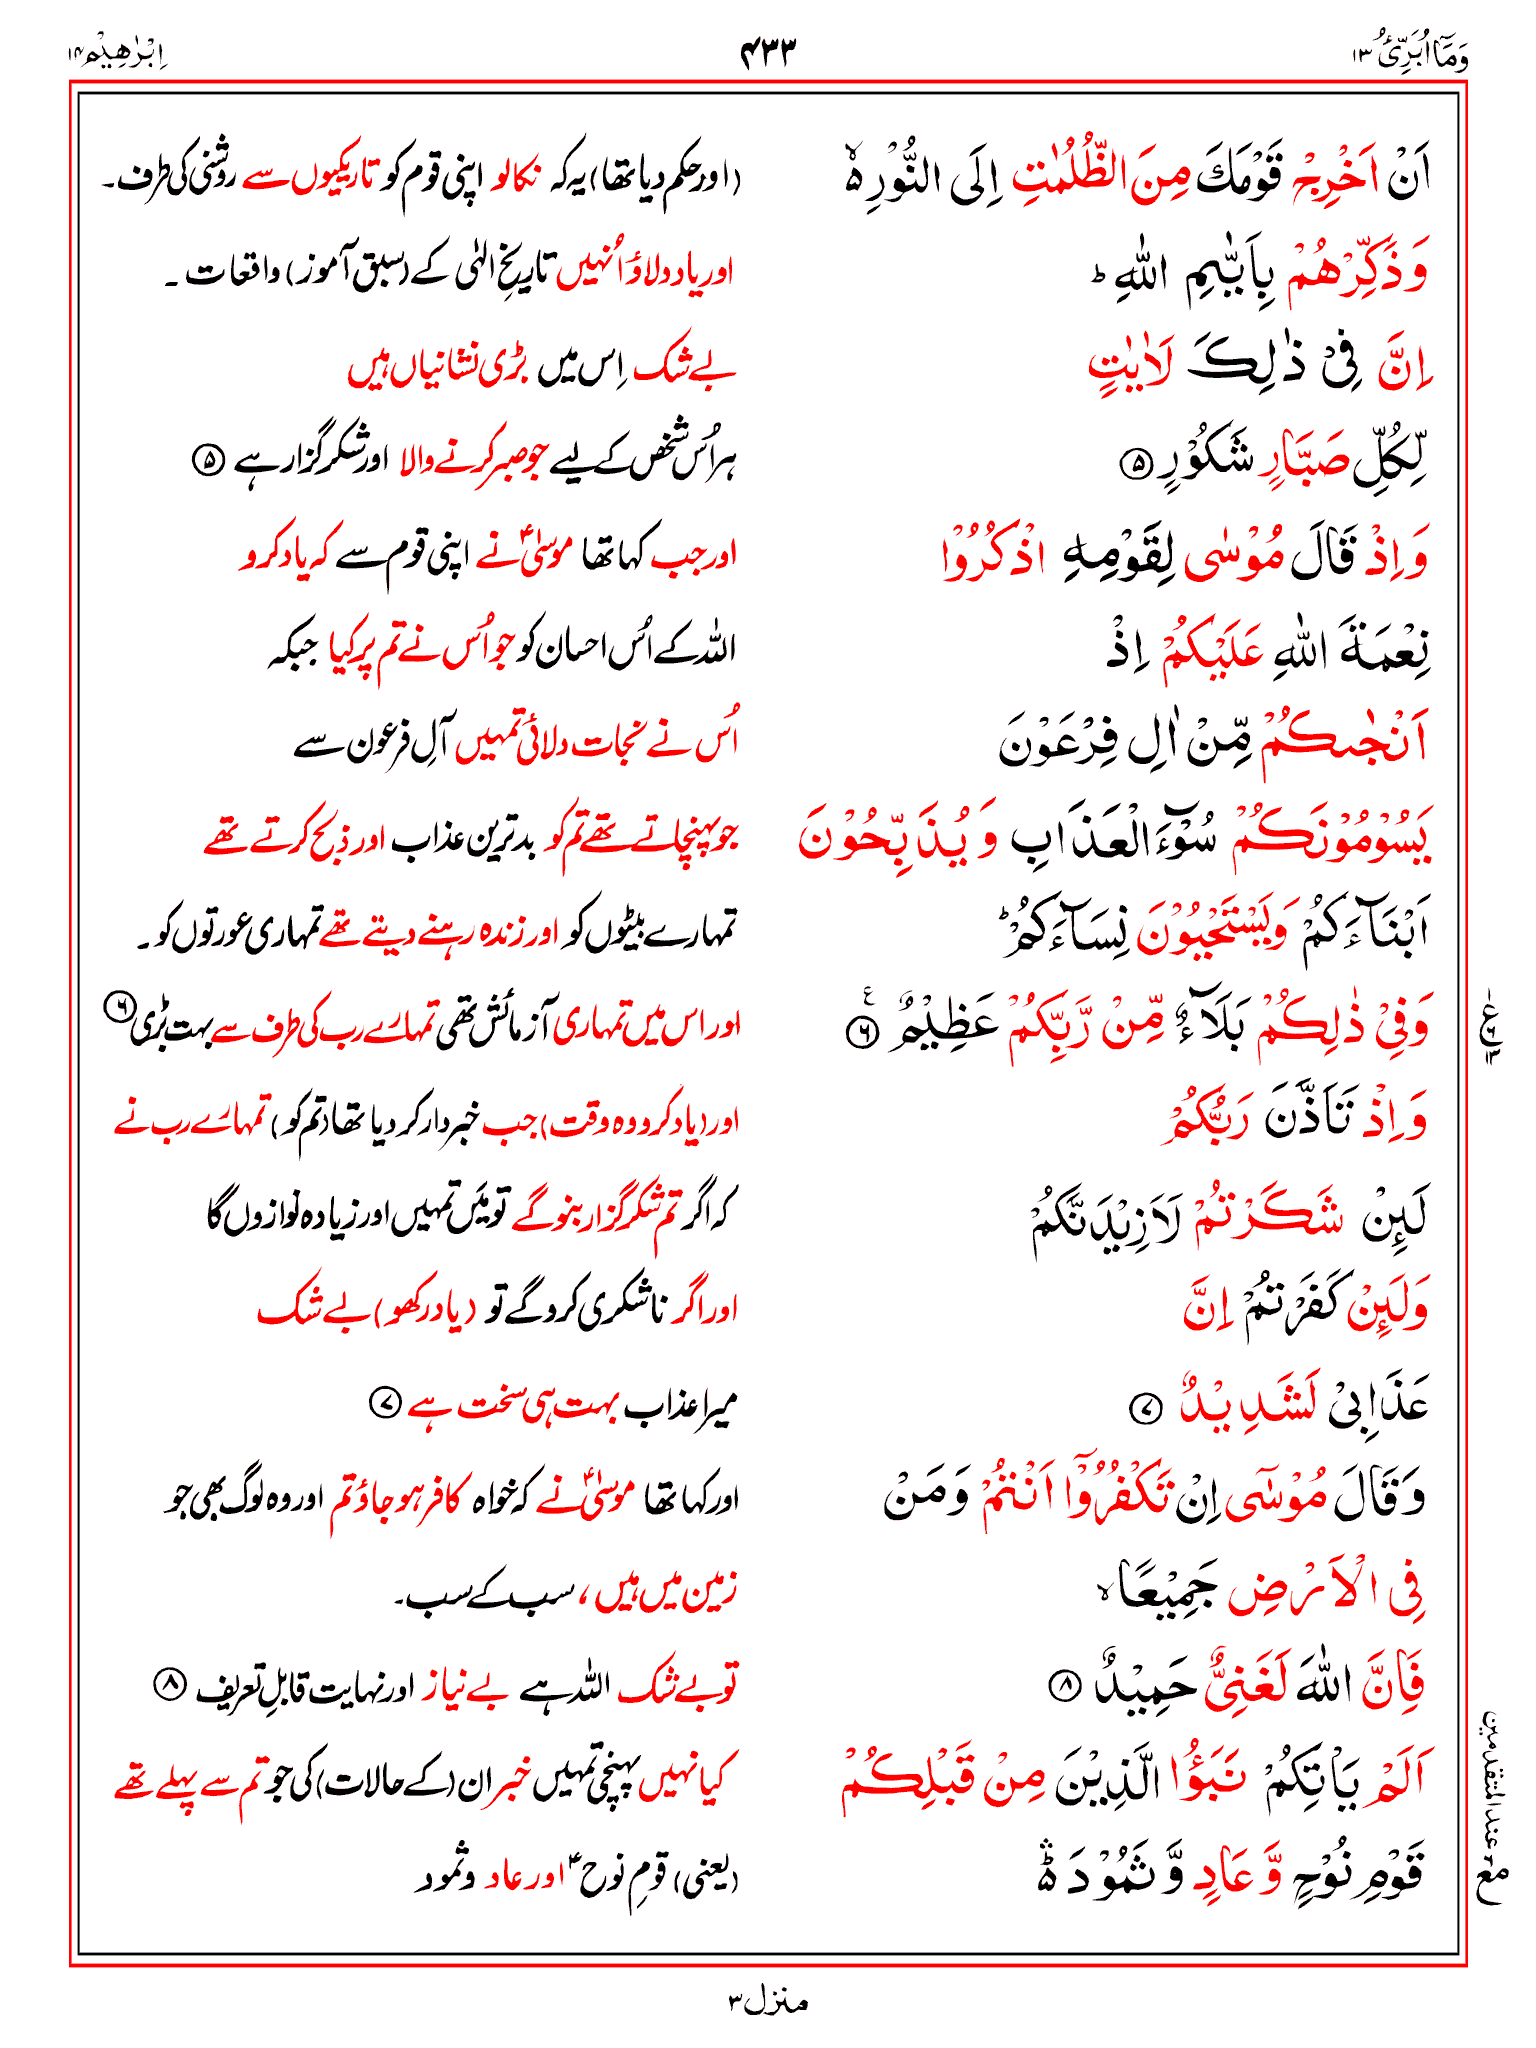 وَمَآ اُبَرِّئُ ۱۳
۴۳۳
اِبْرٰهِیْم ۱۴
اَنْ اَخْرِجْ قَوْمَكَ مِنَ الظُّلُمٰتِ اِلَى النُّوْرِ ۙ۬
(اور حکم دیا تھا) یہ کہ نکالو اپنی قوم کو تاریکیوں سے روشنی کی طرف۔
وَذَكِّرْهُمْ بِاَيّٰىمِ اللّٰهِ ؕ
اور یاد دلاؤ اُنہیں تاریخِ الٰہی کے (سبق آموز) واقعات ۔
اِنَّ فِیْ ذٰلِكَ لَاٰیٰتٍ
بے شک اِس میں بڑی نشانیاں ہیں
لِّكُلِّ صَبَّارٍ شَكُوْرٍ ۵
ہر اُس شخص کے لیے جو صبر کرنے والا اور شکر گزار ہے ۵
وَاِذْ قَالَ مُوْسٰى لِقَوْمِهِ اذْكُرُوْا
اور جب کہا تھا موسیٰؑ نے اپنی قوم سے کہ یاد کرو
نِعْمَةَ اللّٰهِ عَلَیْكُمْ اِذْ
اللہ کے اُس احسان کو جو اُس نے تم پر کیا جبکہ
اَنْجٰىكُمْ مِّنْ اٰلِ فِرْعَوْنَ
اُس نے نجات دلائی تمہیں آلِ فرعون سے
یَسُوْمُوْنَكُمْ سُوْٓءَ الْعَذَابِ وَیُذَبِّحُوْنَ
جو پہنچاتے تھے تم کو بدترین عذاب اور ذبح کرتے تھے
اَبْنَآءَكُمْ وَیَسْتَحْیُوْنَ نِسَآءَكُمْ ؕ
تمہارے بیٹوں کو اور زندہ رہنے دیتے تھے تمہاری عورتوں کو ۔
وَفِیْ ذٰلِكُمْ بَلَآءٌ مِّنْ رَّبِّكُمْ عَظِیْمٌ ۶ ع
اور اس میں تمہاری آزمائش تھی تمہارے رب کی طرف سے بہت بڑی ۶
وَاِذْ تَاَذَّنَ رَبُّكُمْ
اور (یاد کرو وہ وقت) جب خبردار کر دیا تھا (تم کو) تمہارے رب نے
لَئِنْ شَكَرْتُمْ لَاَزِیْدَنَّكُمْ
کہ اگر تم شکر گزار بنو گے تو میَں تمہیں اور زیادہ نوازوں گا
وَلَئِنْ كَفَرْتُمْ اِنَّ
اور اگر ناشکری کرو گے تو (یاد رکھو) بے شک
عَذَابِیْ لَشَدِیْدٌ ۷
میرا عذاب بہت ہی سخت ہے ۷
وَقَالَ مُوْسٰۤى اِنْ تَكْفُرُوْۤا اَنْتُمْ وَمَنْ
اور کہا تھا موسیٰؑ نے کہ خواہ کافر ہو جاؤ تم اور وہ لوگ بھی جو
فِی الْاَرْضِ جَمِیْعًا ۙ
زمین میں ہیں ، سب کے سب۔
فَاِنَّ اللّٰهَ لَغَنِیٌّ حَمِیْدٌ ۸
تو بے شک اللہ ہے بے نیاز اور نہایت قابلِ تعریف ۸
اَلَمْ یَاْتِكُمْ نَبَؤُا الَّذِیْنَ مِنْ قَبْلِكُمْ
کیا نہیں پہنچی تمہیں خبر ان (کے حالات) کی جو تم سے پہلے تھے
قَوْمِ نُوْحٍ وَّعَادٍ وَّثَمُوْدَ ۛؕ
(یعنی) قومِ نوحؑ اور عاد و ثمود
مع عند المتقدمین
منزل ۳